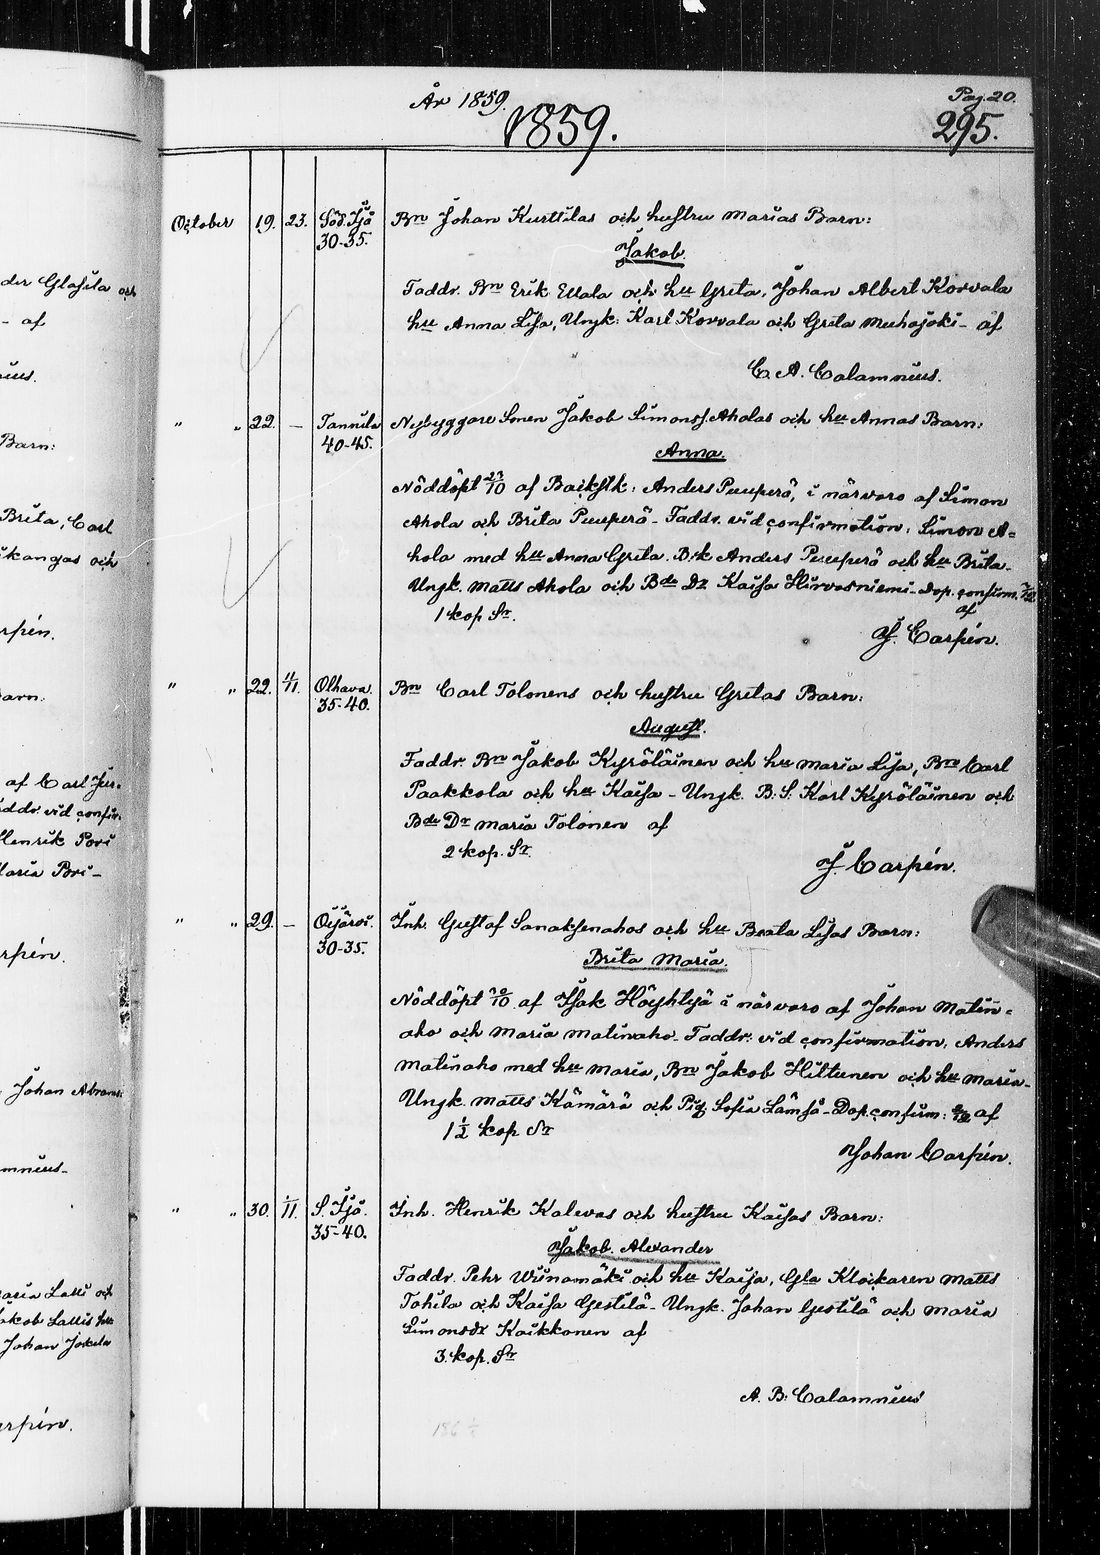 År 1859.
Pag. 20.
1859.
295.
October 19. 23. Söd. Ijå Bn Johan Kurttilas och hustru Marias Barn:
30-35.
Jakob.
Faddr. Bn Erik Ellala och hu Greta, Johan Albert Korvala
hu Anna Lisa, Ungk: Karl Korvala och Greta Muhojoki- af
C. A. Calamnius.
" " 22. — Tannila Nybyggare Sonen Jakob Simonss. Aholas och hu Annas Barn:
40-45.
Anna.
Nöddöpt 23/10 af Backstk: Anders Puuperä, i närvaro af Simon
Ahola och Brita Puuperä- Faddr. vid confirmation: Simon A=
hola med hu Anna Greta. B.k Anders Puuperä och hu Brita-
Ungk. Matts Ahola och Bde Dr Kaisa Hirvasniemi- Dop. confirm.
af
1 kop Sr.
J. Carpén.
" " 22. 4/11. Olhava. Bn Carl Tolonens och hustru Gretas Barn:
35-40.
August.
Faddr. Bn Jakob Kyröläinen och hu Maria Lisa, Bn Carl
Paakkola och hu Kaisa- Ungk. B. S. Karl Kyröläinen och
Bde Dr Maria Tolonen af
2 kop. Sr.
J. Carpén.
" " 29. — Oijärvi. Inh. Gustaf Sanaksenahos och hu Beata Lisas Barn:
30-35.
Brita Maria.
Nöddöpt 30/10 af Isak Höyhtyä i närvaro af Johan Matin=
aho och Maria Matinaho- Faddr: vid confirmation, Anders
Matinaho med hu Maria, Bn Jakob Hiltunen och hu Maria-
Ungk. Matts Kämärä och Pig. Sofia Lämsä- Dop. confirm: af
1 1/2 kop Sr
Johan Carpén.
" " 30. 1/11. S. Ijå. Inh. Henrik Kalevas och hustru Kaisas Barn:
35-40.
Jakob Alexander
Faddr. Pehr Wiinamäki och hu Kaisa, Gla Klockaren Matts
Tohila och Kaisa Gestilä- Ungk. Johan Gestilä och Maria
Simonsdr Kaikkonen af
3. kop. Sr
A. B. Calamnius